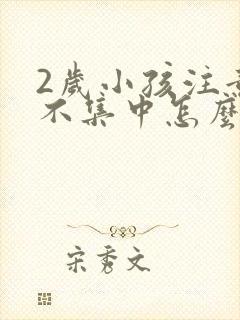 2歲小孩注意
不集中怎麼
宋秀文